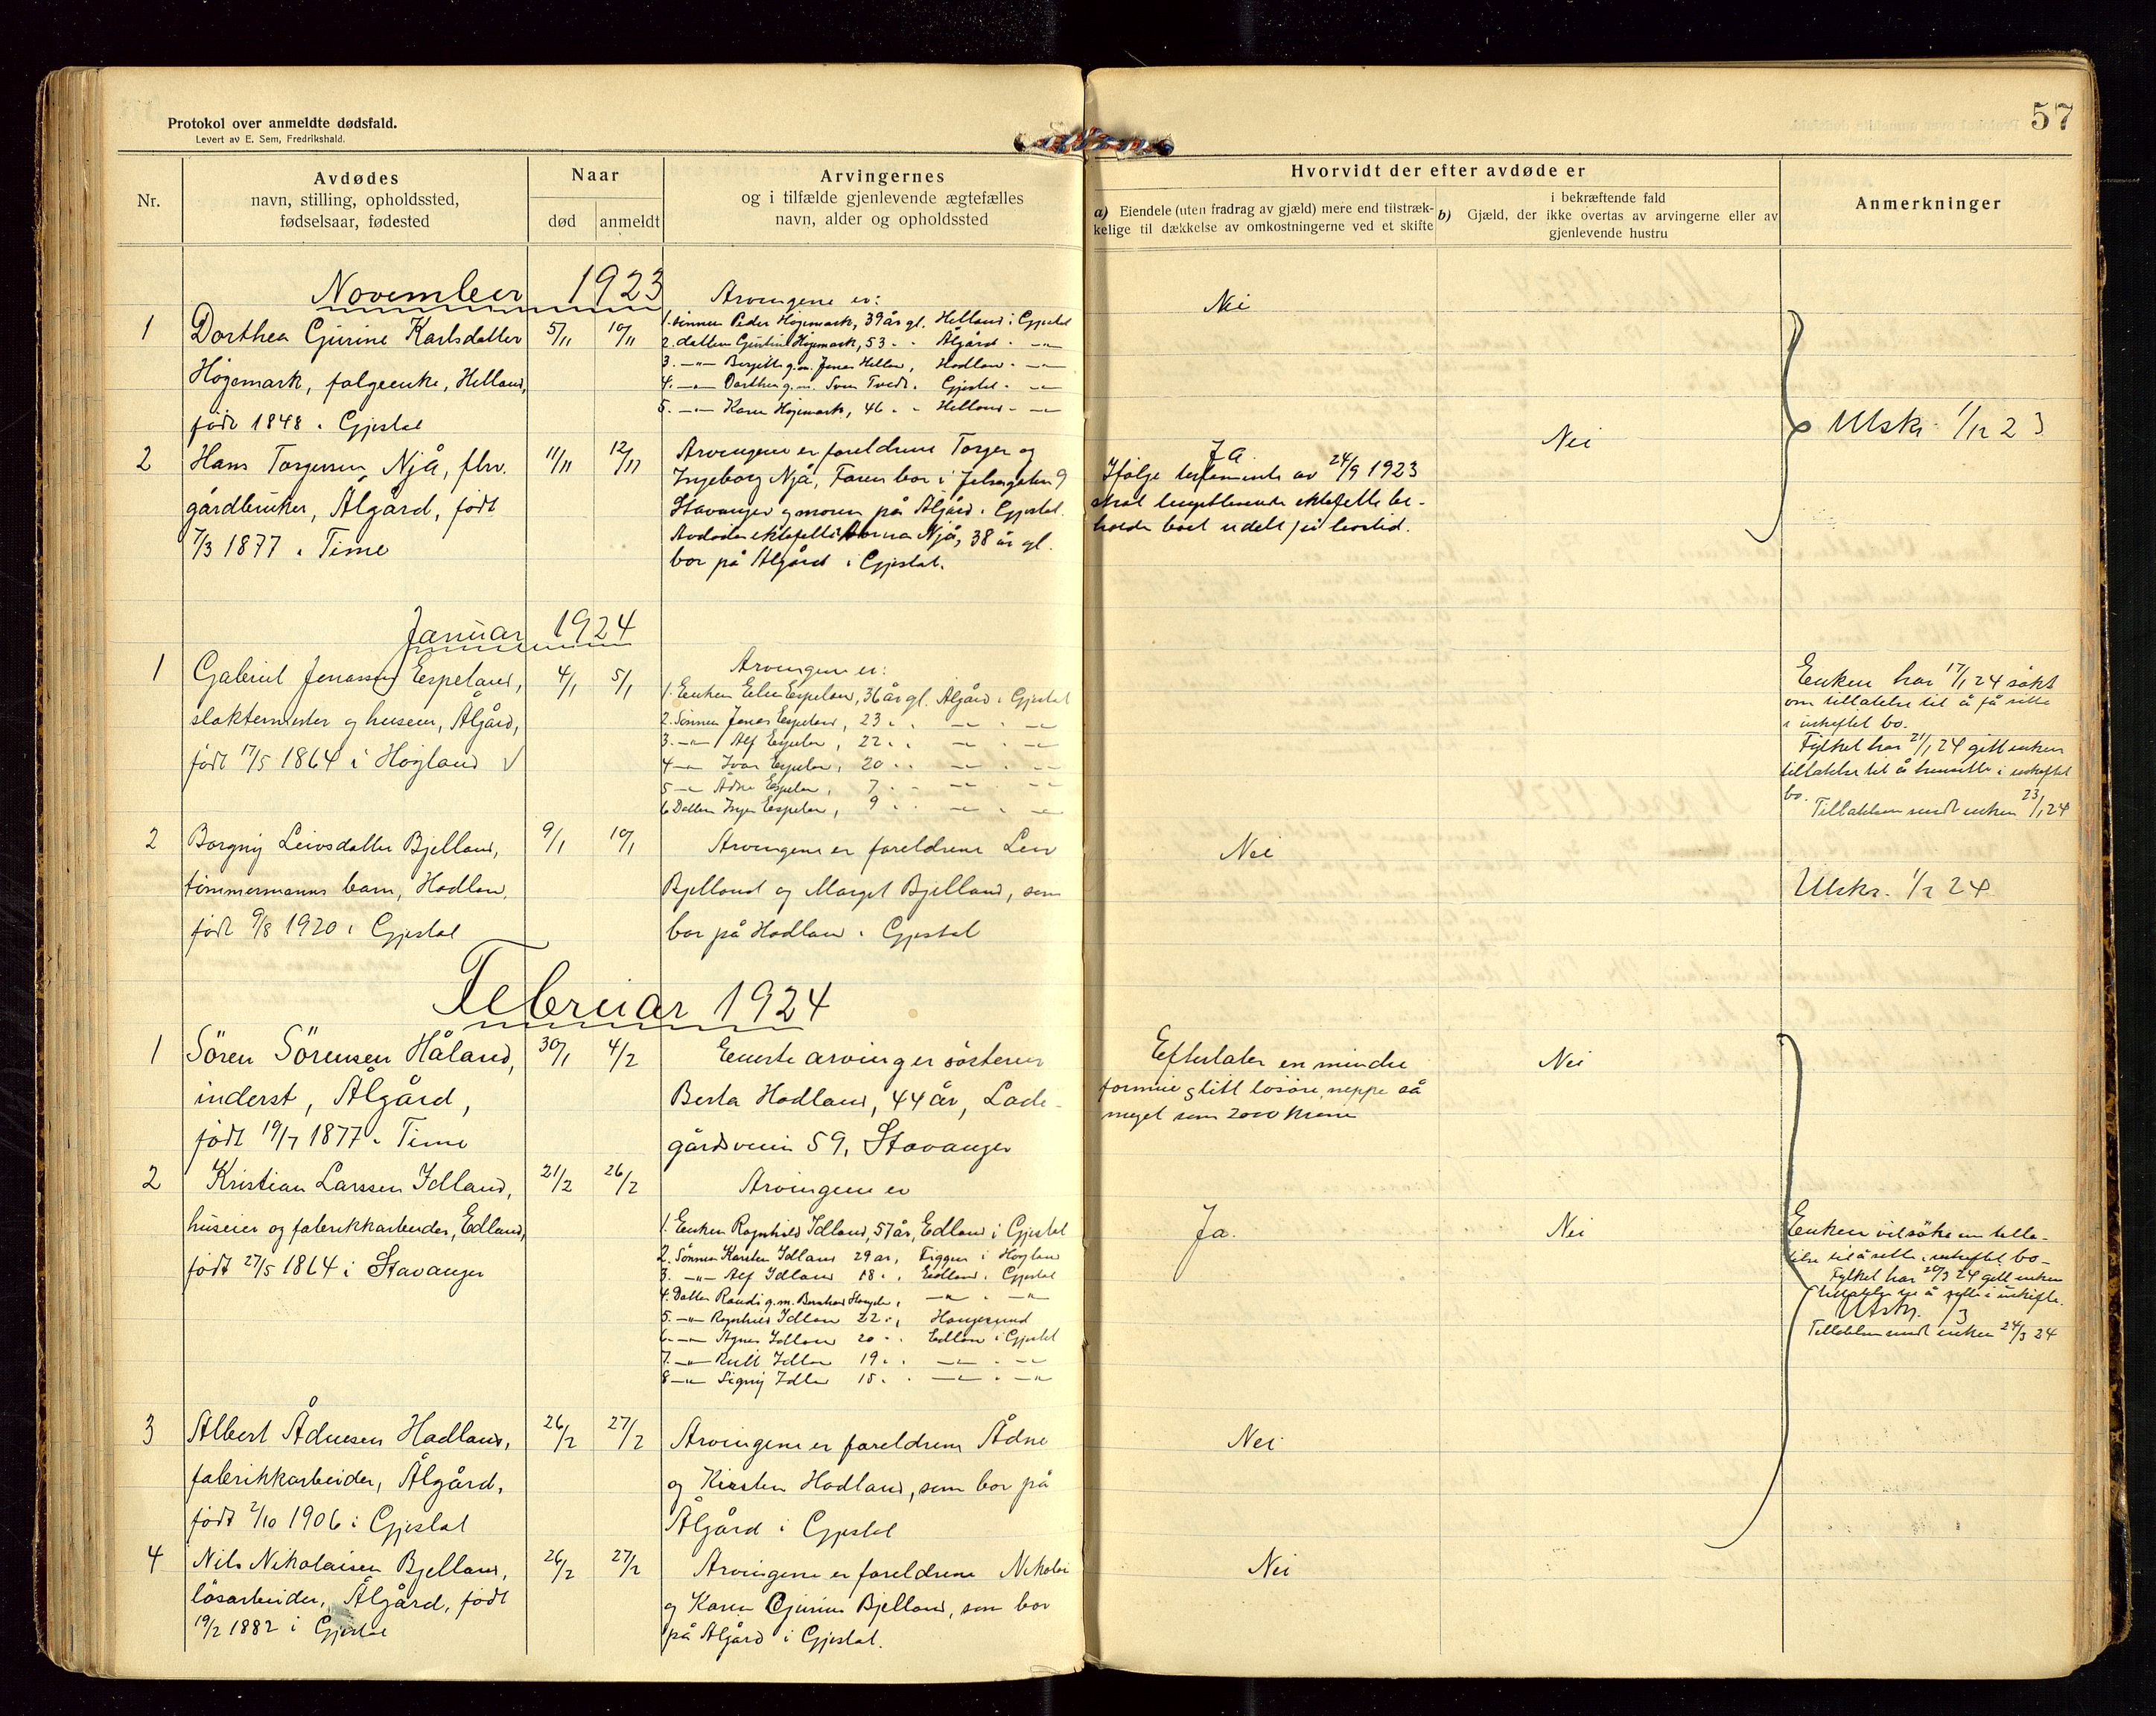 57
Protokol over anmeldte dødsfald.
Levert av E. Sem, Fredrikshald.
Nr.
Avdødes
navn, stilling, opholdssted,
fødselsaar, fødested
Naar
død
anmeldt
Arvingernes
og i tilfælde gjenlevende ægtefælles
navn, alder og opholdssted
Hvorvidt der efter avdøde er
a) Eiendele (uten fradrag av gjæld) mere end tilstræk-
kelige til dækkelse av omkostningerne ved et skifte
i bekræftende fald
b) Gjæld, der ikke overtas av arvingerne eller av
gjenlevende hustru
Anmerkninger
November 1923
1
Dorthea Gjurine Karlsdatter
Høgemark, folgeenke, Helland,
født 1848 i Gjestal
5/11
10/11
Arvingene er:
1. sønnen Peder Høgemark, 39 år gl. Helland i Gjestal
2. datteren Gjurine Høgemark, 53 " " Ålgård " —"—
3. —"— Bergitte g.m. Jonas Hellan, Hadlan " —"—
4. —"— Dorthea g.m. Sven Tvedt " Gjestal " —"—
5. —"— Karen Høgemark, 46 " " Helland " —"—
Nei
2
Hans Torgersen Njå, fhv.
gårdbruker, Ålgård, født
7/3 1877 i Time
11/11
12/11
Arvingene er foreldrene Torger og
Ingeborg Njå, Faren bor i Jelsagaten 9
Stavanger og moren på Ålgård i Gjestal.
Avdødes ektefelle Anna Njå, 38 år gl.
bor på Ålgård i Gjestal.
Ja
Ifølge testamente av 24/9 1923
skal lengstlevende ektefelle be-
holde boet udelt på livstid.
Nei
Utskr. 1/12 23
Januar 1924
1
Gabriel Jonassen Espeland,
slaktermester og huseier, Ålgård,
født 17/5 1864 i Høyland √
4/1
5/1
Arvingene er:
1. Enken Elen Espelan, 36 år gl. Ålgård i Gjestal
2. Sønnen Jonas Espeland, 23 " " —"— " —"—
3. —"— Alf Espelan, 22 " " —"— " —"—
4 —"— Ivar Espelan, 20 " " —"— " —"—
5 —"— Ådne Espelan, 7 " —"— " —"—
6 Datter Inger Espelan, 9 " " —"— " —"—
Enken har 17/1 24 søkt
om tillatelse til å få sitte
i uskiftet bo.
Fylket har 21/1 24 gitt enken
tillatelse til å hensitte i uskiftet
bo.
Tillatelsen sendt enken 23/1 24
2
Borgny Leivsdatter Bjelland,
tømmermanns barn, Hadlan,
født 9/8 1920 i Gjestal
9/1
10/1
Arvingene er foreldrene Leiv
Bjelland og Marget Bjelland, som
bor på Hadlan i Gjestal
Nei
Utskr. 1/2 24
Februar 1924
1
Sören Sörensen Håland,
inderst, Ålgård,
født 19/7 1877 i Time
30/1
4/2
Eneste arving er søsteren
Berta Hadland, 44 år, Lade-
gårdsveien 59, Stavanger
Efterlater en mindre
formue & litt løsøre, neppe så
meget som 2000 kroner
Nei
2
Kristian Larssen Idland,
huseier og fabrikkarbeider, Edland,
født 27/5 1864 i Stavanger
21/2
26/2
Arvingene er
1. Enken Ragnhild Idland, 57 år, Edland i Gjestal
2. Sønnen Karsten Idland 29 år, Figgen i Høylan
3. —"— Alf Idland 18 " , Edland i Gjestal
4. Datter Randi g.m. Bernhard , —"— " —"—
5. —"— Ragnhild Idlan 22 " , Haugesund
6. —"— Agnes Idlan 20 " " Edlan i Gjestal
7. —"— Rutt Idlan 19 " " —"— " —"—
8 —"— Signy Idlan 15 " " —"— " —"—
Ja.
Nei
Enken vil søke om tilla-
telse til å sitte i uskiftet bo—
Fylket har 20/3 24 gitt enken
tillatelse til å sitte i uskifte.
Utskr. 3
Tillatelsen sendt enken 24/3 24
3
Albert Ådnesen Hadland,
fabrikkarbeider, Ålgård,
født 2/10 1906 i Gjestal
26/2
27/2
Arvingene er foreldrene Ådne
og Kirsten Hadland, som bor på
Ålgård i Gjestal
Nei
4
Nils Nikolaisen Bjelland,
løsarbeider, Ålgård, født
19/2 1882 i Gjestal
26/2
27/2
Arvingene er foreldrene Nikolai
og Karen Gjurine Bjelland, som bor
på Ålgård i Gjestal.
Nei